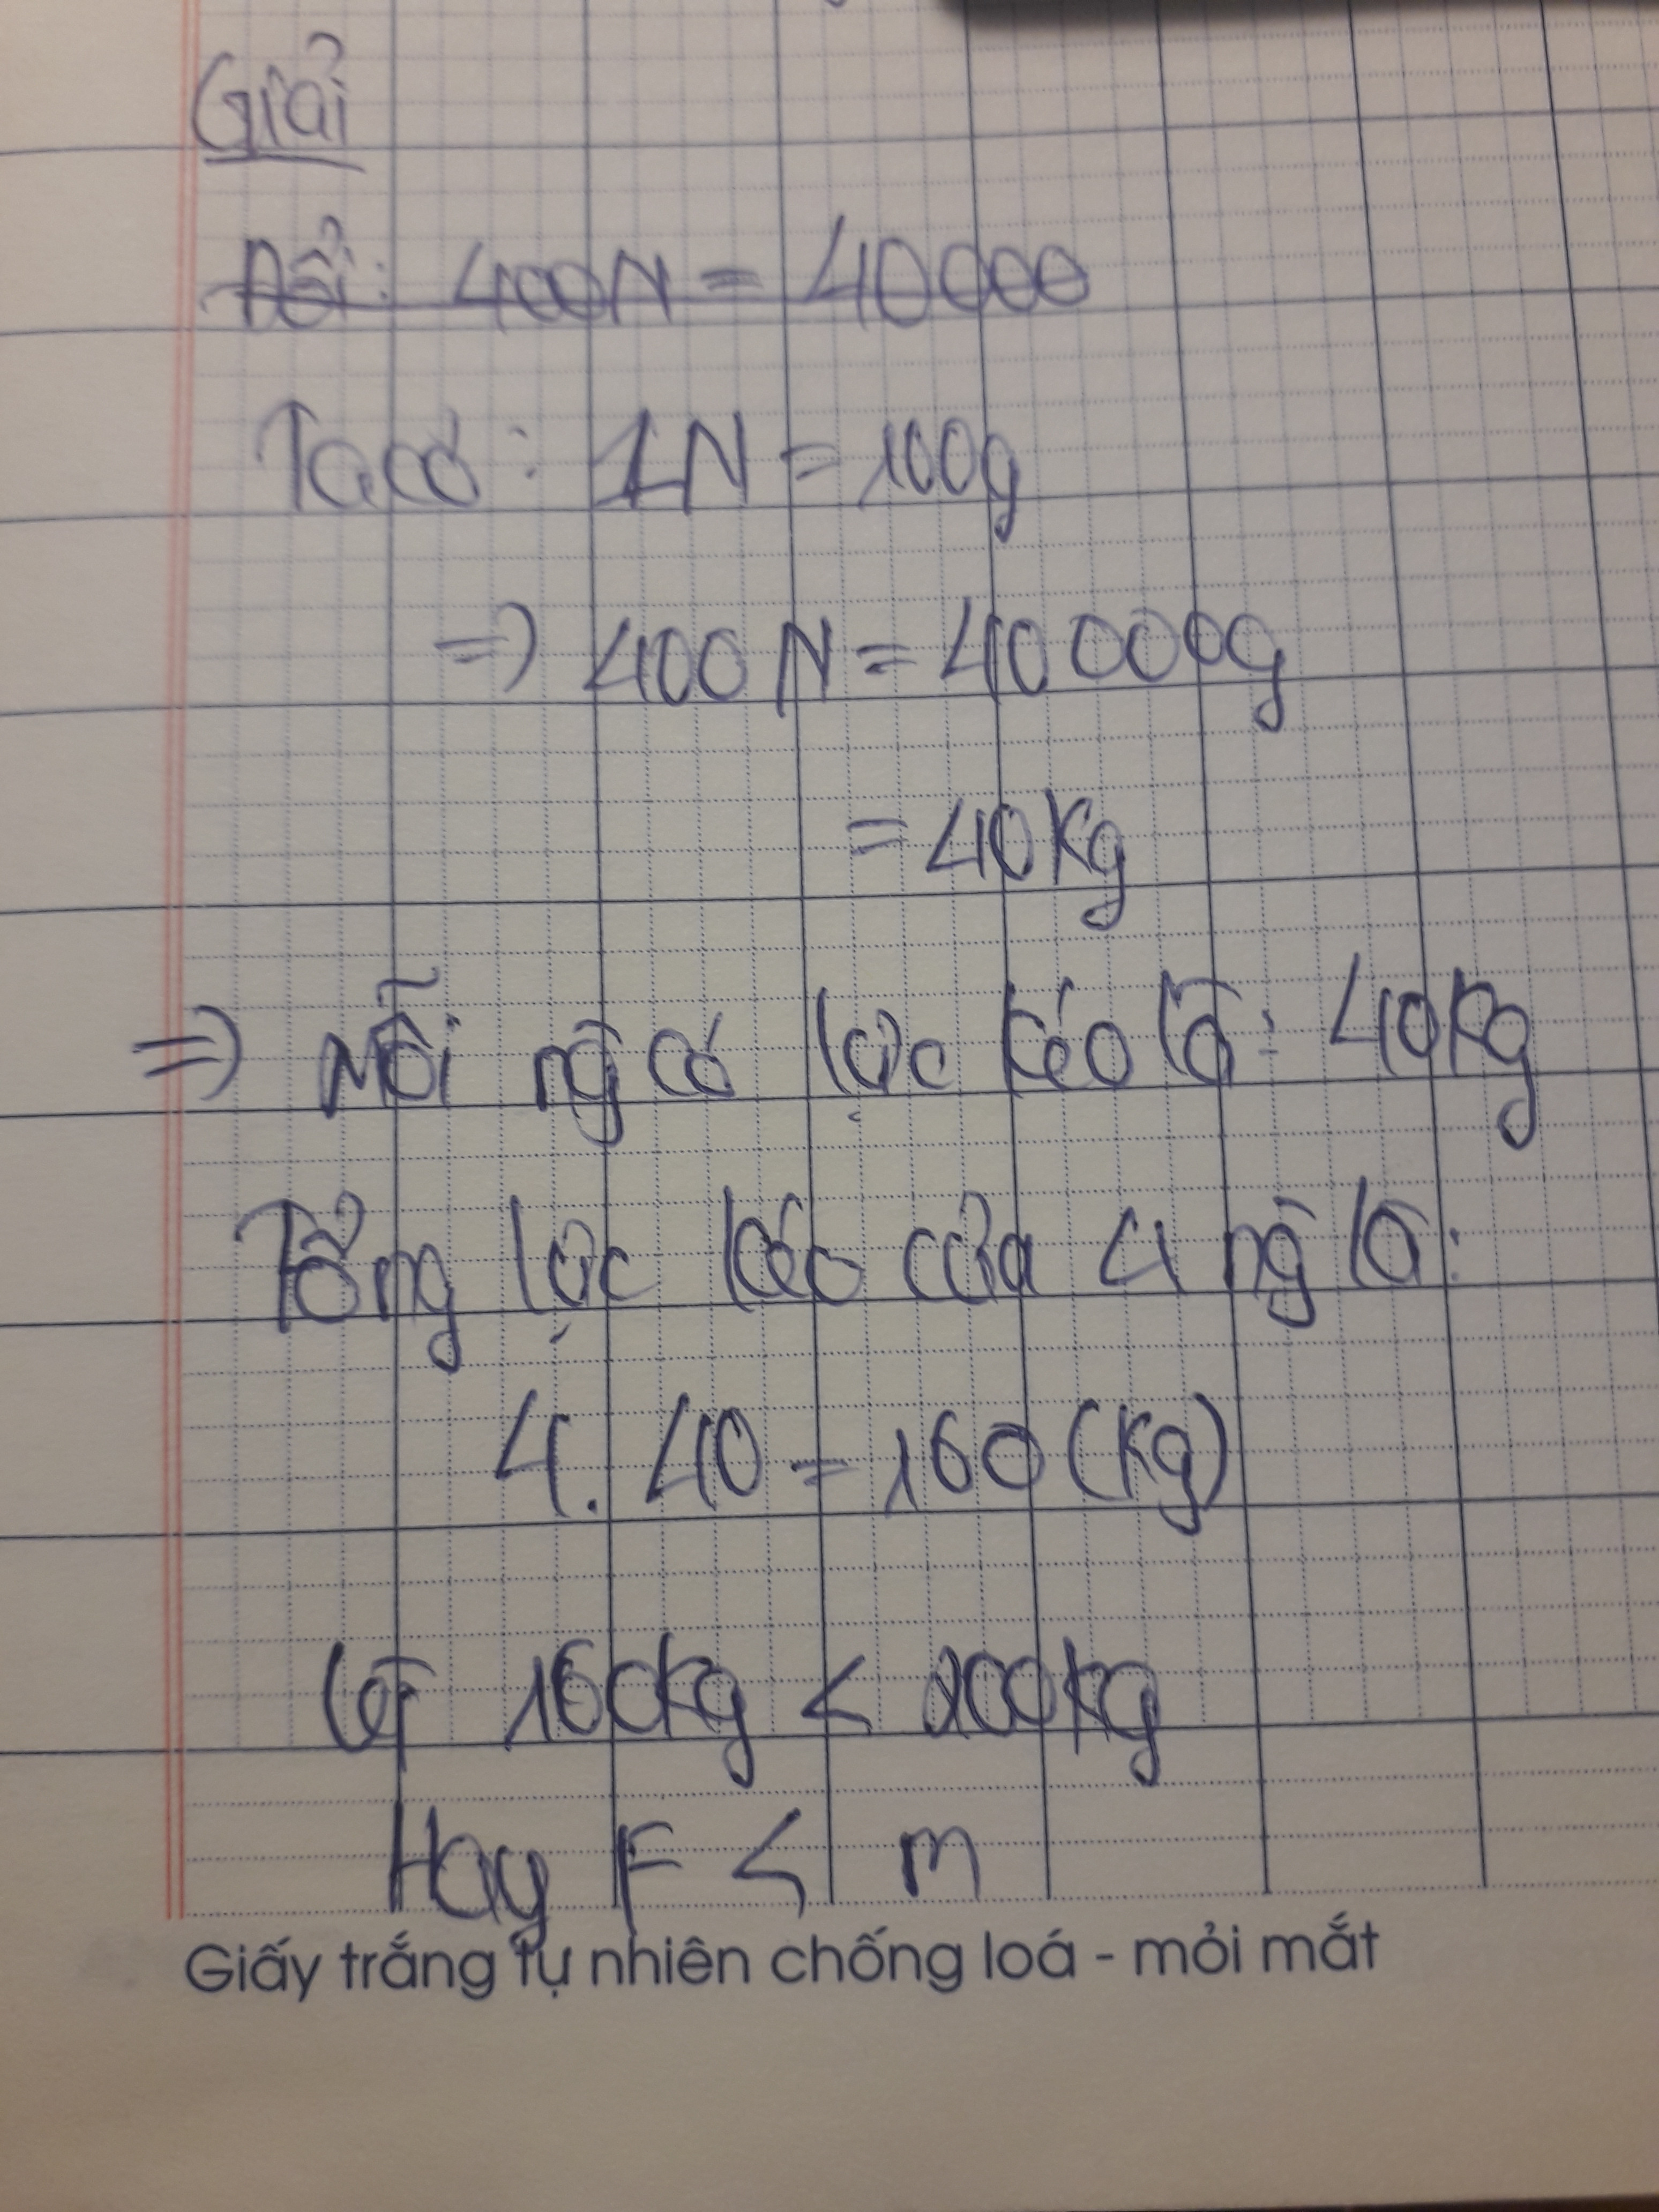 Giải
Đổi: 400N = 40000
Ta có: 1N = 100g
=> 400N = 40000g
= 40kg
=> Mỗi ng̀ có lực kéo là: 40kg
Tổng lực kéo của 4 ng̀ là:
4. 40 = 160 (kg)
Vì 160kg < 200kg
Hay F < m
Giấy trắng tự nhiên chống loá - mỏi mắt